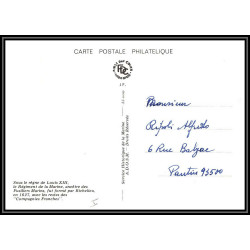 CARTE POSTALE PHILATELIQUE
Monsieur
Ripoli Alfredo
6 Rue Balzac
Pantin 93500
Sous le règne de Louis XIII,
le Régiment de la Marine, ancêtre des
Fusiliers Marins, fut formé par Richelieu,
en 1627, avec les restes des
"Compagnies Franches"
Service Historique de la Marine